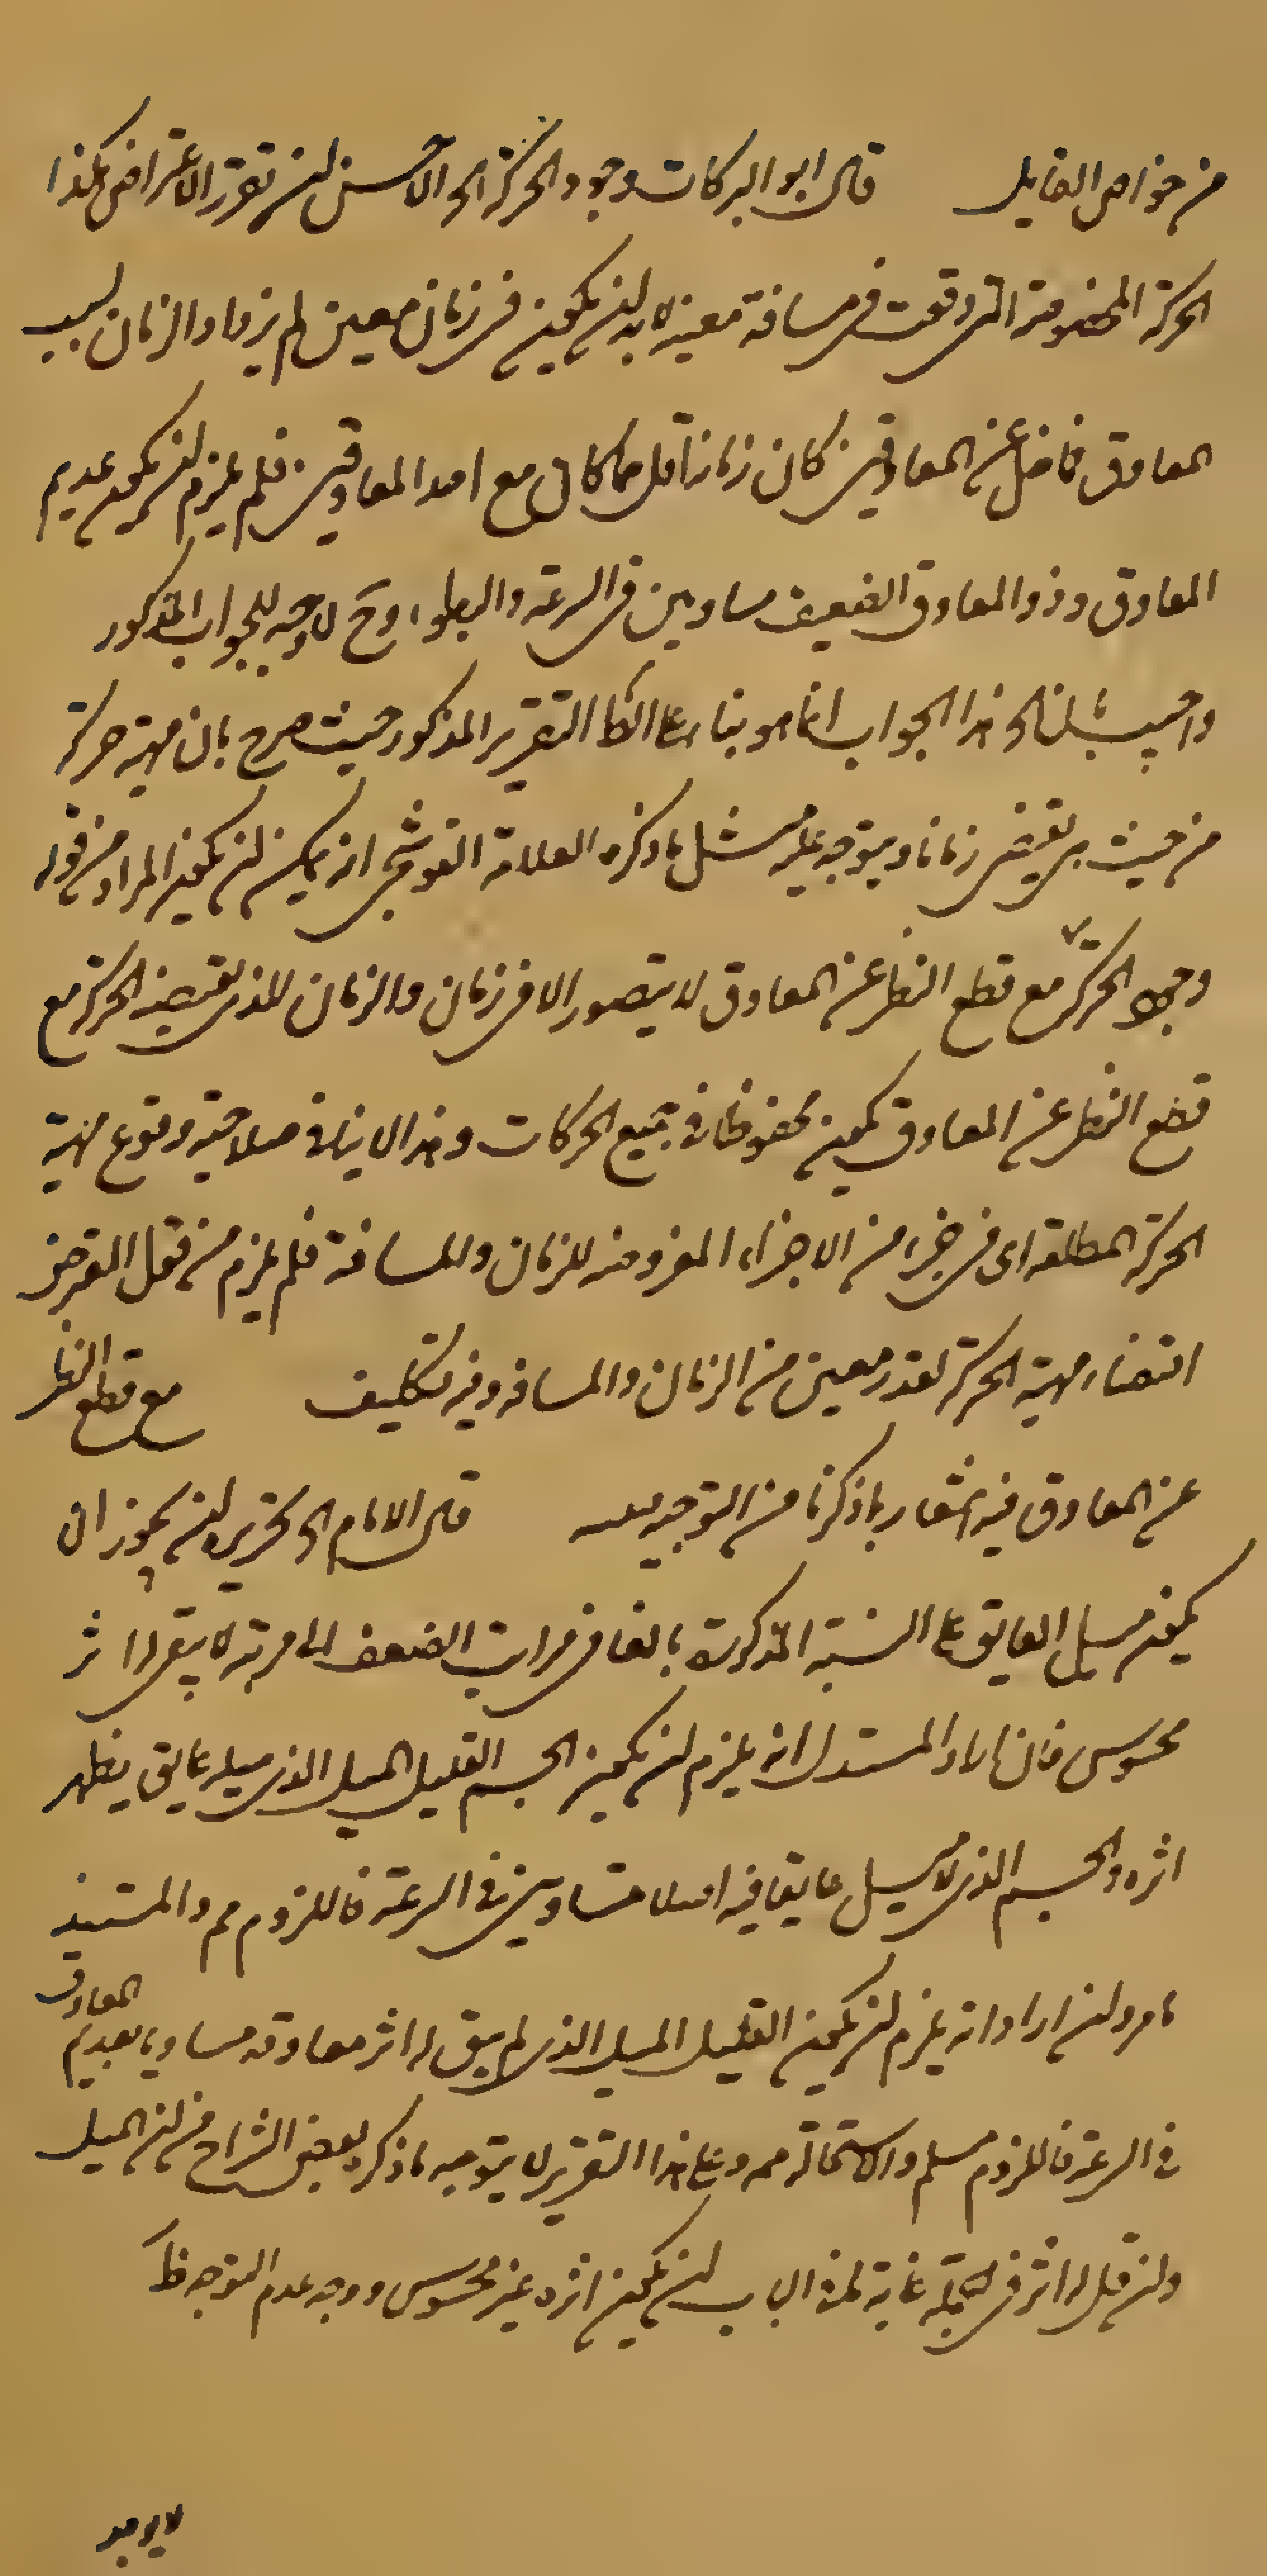 من خواص القابل قال ابو البركات وجود الحركة الخ الاحسن ان تقرر الاعتراض هكذا
الحركة المخصوصة التى وقعت فى مسافة معينة لا بد ان يكون فى زمان معين ثم يزداد الزمان بسبب
المعاوق فاضل عن المعاوقين كان زمانها اقل مما كان مع احد المعاوقين فلم يلزم ان يكون عديم
المعاوق وذو المعاوق الضعيف مساويين فى السرعة والبطوء وح لا وجه للجواب المذكور
واجيب بان هذا الجواب انما هو بناء على التقرير المذكور حيث صرح بان مهية حركة
من حيث هى يقتضى زمانا ويتوجه عليه مثل ما ذكره العلامة القوشجى انه يمكن ان يكون المراد من قوله
وجود الحركة مع قطع النظر عن المعاوق لا يتصور الا فى زمان والزمان الذى يقتضيه الحركة مع
قطع النظر عن المعاوق يكون محفوظا فى جميع الحركات وهذا لا ينافى صلاحية وقوع مهية
الحركة المطلقة اى فى جزء من الاجزاء المفروضة للزمان وللمسافة فلم يلزم من قول المعترض
اقتضاء مهية الحركة لقدر معين من الزمان والمسافة وفيه تكليف مع قطع النظر
عن المعاوق فيه اشعار بما ذكرنا من التوجيه قال الامام الخ تحريره ان يجوز ان
يكون ميل العايق على النسبة المذكورة بالغا فى مراتب الضعف الى مرتبة لا يبقى له اثر
محسوس فان اراد المستدل انه يلزم ان يكون الجسم القليل الميل الذى ميله عايق يظهر
اثره والجسم الذى لا ميل عايقا فيه اصلا متساويين فى السرعة فاللزوم مم والمستند
ما مر وان اراد انه يلزم ان يكون القليل الميل الذى لم يبق له اثر معاوقة مساويا بعديم المعاوق
فى السرعة فاللزوم مسلم والاستحالة مم وعلى هذا التقرير لا يتوجه ما ذكره بعض الشراح من ان الميل
وان قل له اثر فى الجملة غاية لهذا الباب ان يكون اثره غير محسوس ووجه عدم التوجه ظ
لا يوجد